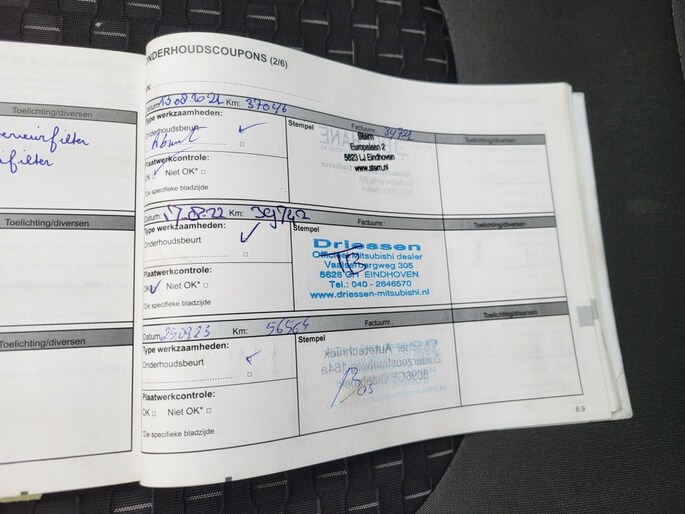 Toelichting/diversen
filter
filter
Toelichting/diversen
Toelichting/diversen
ONDERHOUDSCOUPONS (2/6)
Datum: 13-08-2021 Km: 37046
Type werkzaamheden:
Onderhoudsbeurt
Plaatwerkcontrole:
Niet OK*
*Zie specifieke bladzijde
Stempel
Factuurnr.: 39721
Stern
Europalaan 2
5623 LJ Eindhoven
www.stern.nl
Toelichting/diversen
Datum: 17-08-22 Km: 39742
Type werkzaamheden:
Onderhoudsbeurt
Plaatwerkcontrole:
OK Niet OK*
*Zie specifieke bladzijde
Stempel
Driessen
Officieel Mitsubishi dealer
5628 CH EINDHOVEN
Tel.: 040 - 2646570
www.driessen-mitsubishi.nl
Toelichting/diversen
Datum: 250923 Km: 56564
Type werkzaamheden:
Onderhoudsbeurt
Plaatwerkcontrole:
OK Niet OK*
*Zie specifieke bladzijde
Stempel
Factuurnr.:
Toelichting/diversen
6.9